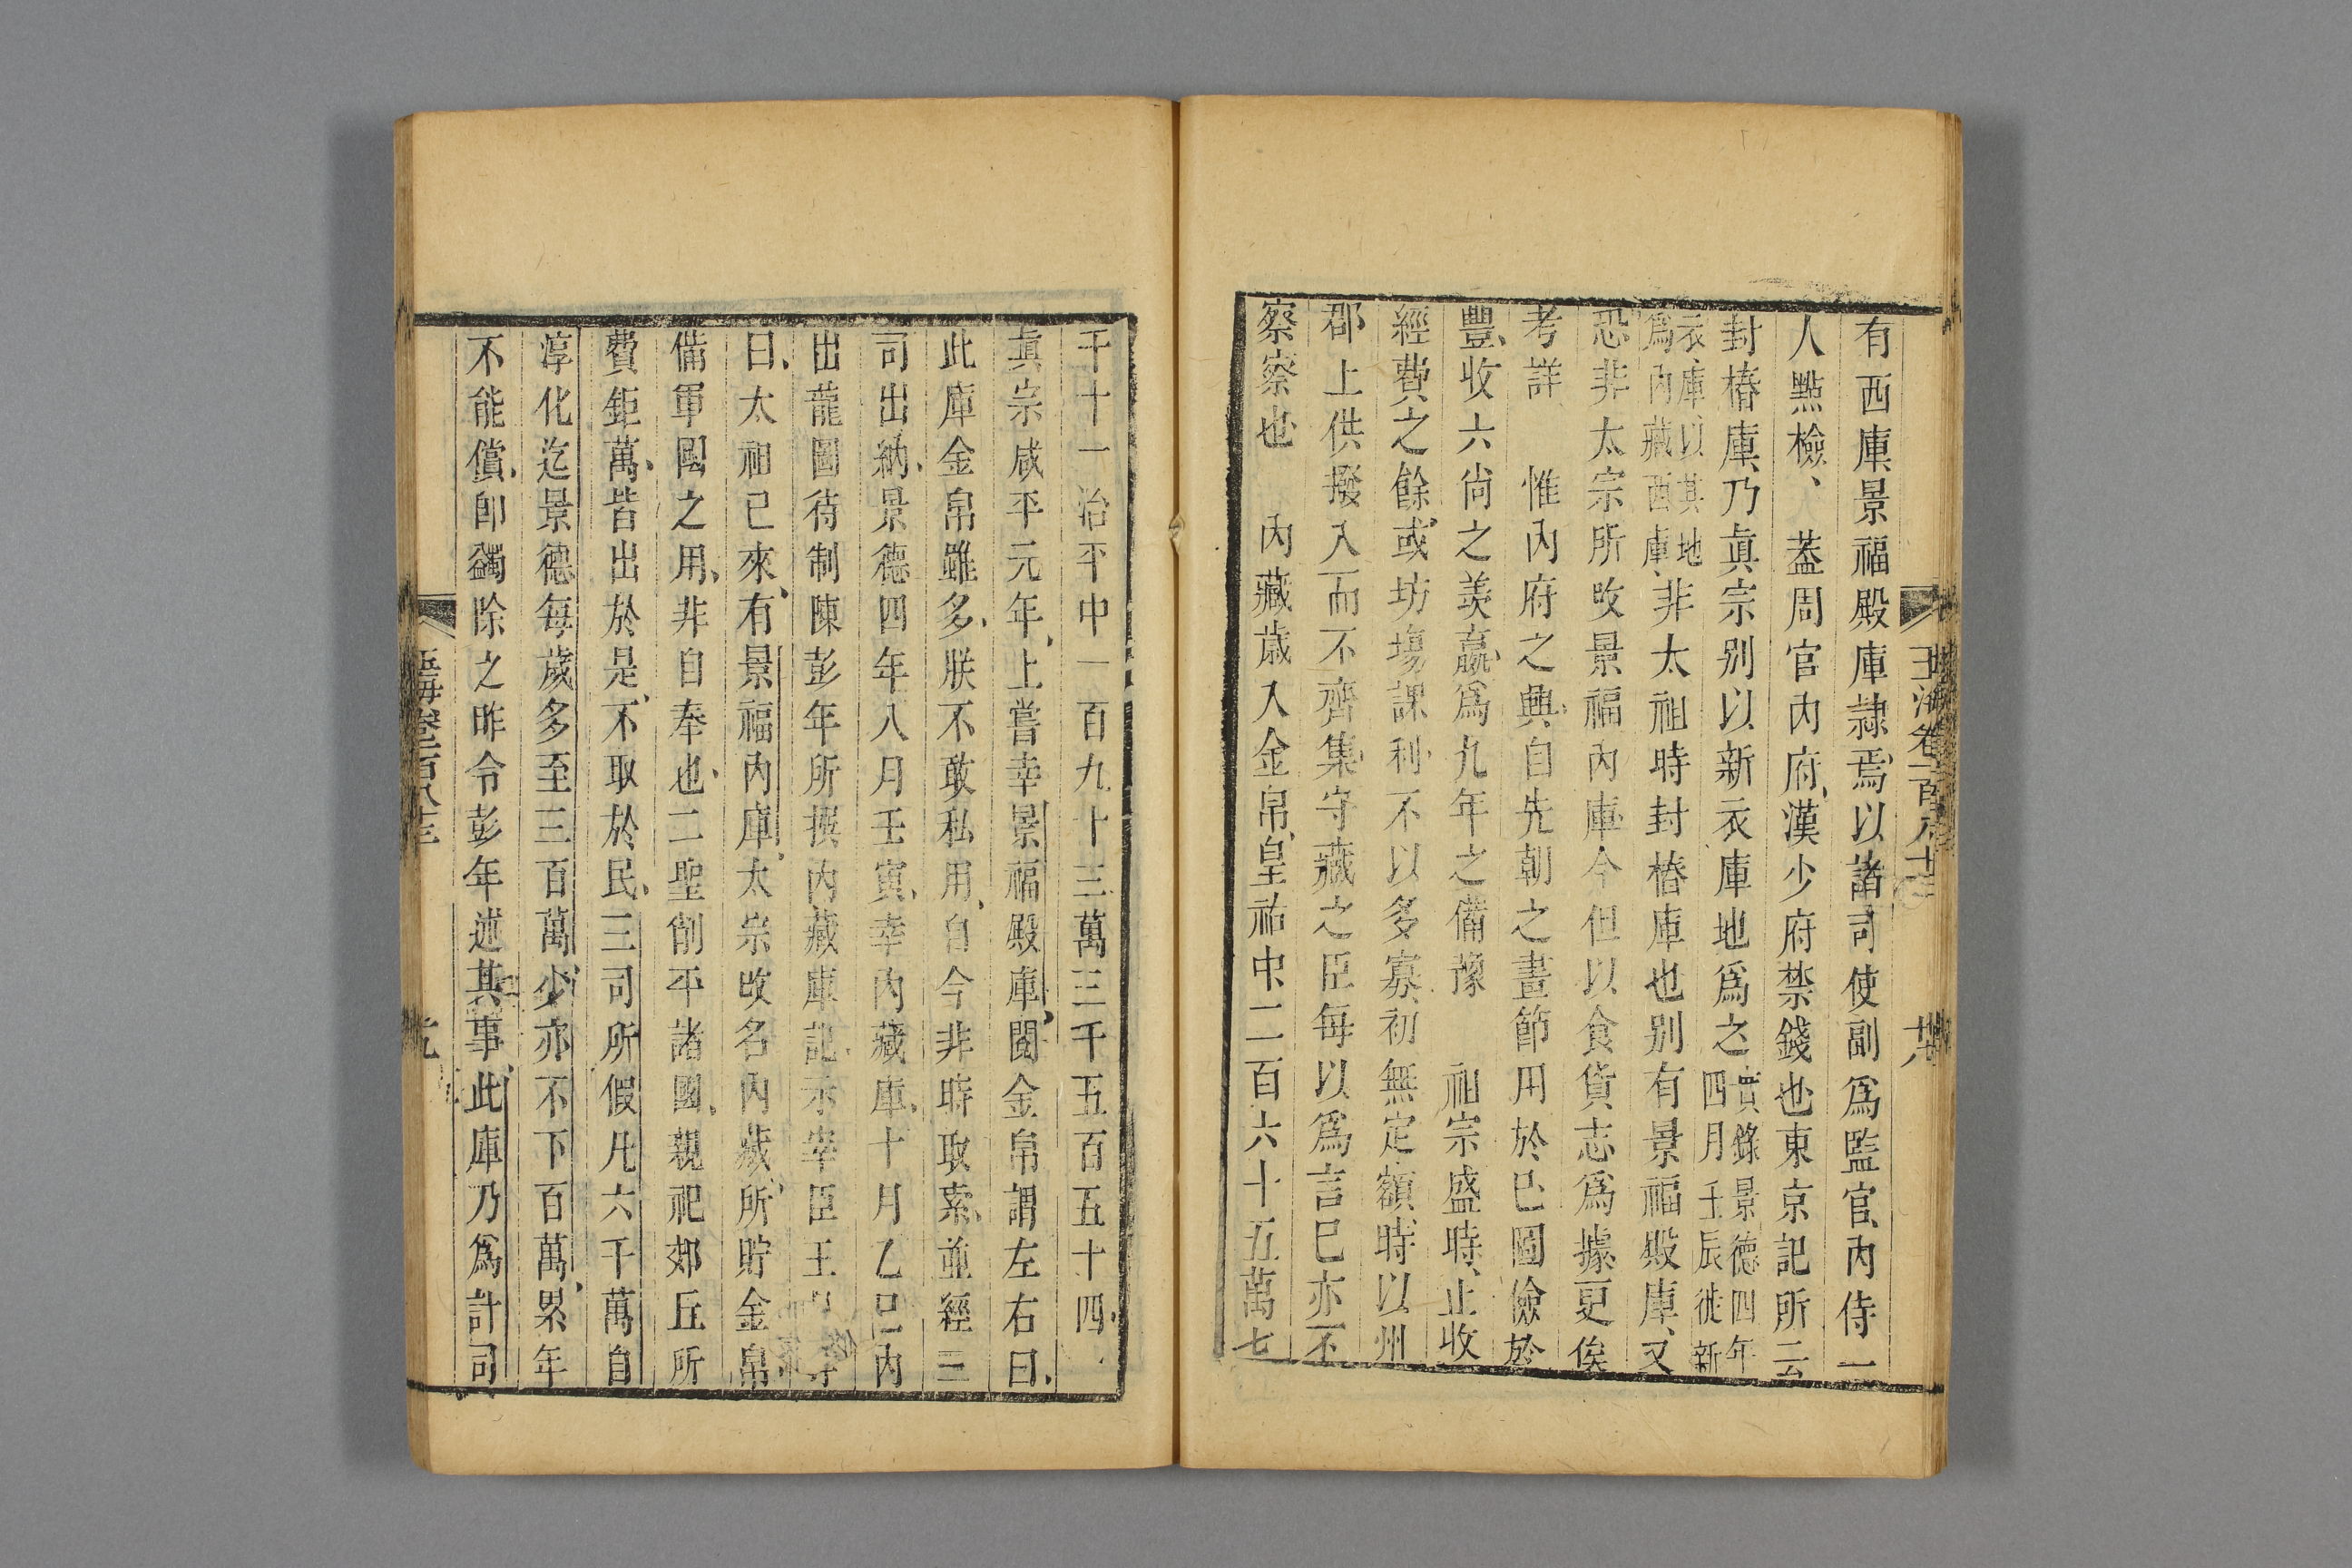 玉海卷一百八十三
有西庫景福殿庫隷焉以諸司使副爲監官内侍一
人點檢蓋周官内府漢少府禁錢也東京記所云
封樁庫乃眞宗别以新衣庫地爲之實錄景德四年
四月壬辰徙新
衣庫以其地
爲内藏西庫非太祖時封樁庫也别有景福殿庫又
恐非太宗所攺景福内庫今但以食貨志爲據更俟
考詳 惟内府之興自先朝之晝節用於已圖儉於
豐收六尚之羨贏爲九年之備豫 祖宗盛時止收
經費之餘或坊塲課利不以多寡初無定額時以州
郡上供撥入而不齊集守藏之臣每以爲言已亦不
察察也 内藏歳入金帛皇祐中二百六十五萬七
千十一治平中一百九十三萬三千五百五十四
眞宗咸平元年上嘗幸景福殿庫閲金帛謂左右曰
此庫金帛雖多朕不敢私用自今非時取索並經三
司出納景德四年八月壬寅幸内藏庫十月乙巳内
出龍圖待制陳彭年所撰内藏庫記示宰臣王等
曰太祖已來有景福内庫太宗攺名内藏所貯金帛
備軍國之用非自奉也二聖削平諸國親祀郊丘所
費鉅萬皆出於是不取於民三司所假凡六千萬自
淳化迄景德每歲多至三百萬少亦不下百萬累年
不能償卽蠲除之昨令彭年述其事此庫乃爲計司
玉海卷一百八十三